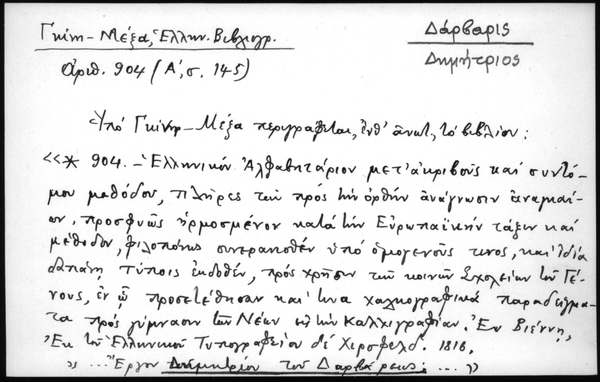 Γκίνη - Μέξα, Ἑλλην. Βιβλιογρ.
Δάρβαρις
Δημήτριος
ἀριθ. 904 (Α΄, σ. 145)
Ὑπό Γκίνη - Μέξα περιγράφεται, ἔνθ' ἀνωτ., τό βιβλίον:
«* 904. - Ἑλληνικόν Ἀλφαβητάριον μετ' ἀκριβοῦς καί συντό-
μου μεθόδου, πλῆρες τῶν πρός τήν ὀρθήν ἀνάγνωσιν ἀναγκαί-
ων, προσφυῶς ἡρμοσμένον κατά τήν Εὐρωπαϊκήν τάξιν καί
μέθοδον, φιλοπόνως συνερανισθέν ὑπό ὁμογενοῦς τινος, καί ἰδίᾳ
δαπάνῃ τύποις ἐκδοθέν, πρός χρῆσιν τῶν κοινῶν Σχολείων τοῦ Γέ-
νους, ἐν ᾧ προσετέθησαν καί τινα χαλκογραφικά παραδείγμα-
τα πρός γύμνασιν τῶν Νέων εἰς τήν Καλλιγραφίαν. Ἐν Βιέννῃ,
Ἐκ τοῦ Ἑλληνικοῦ Τυπογραφείου δέ Χιρσφελδ. 1816.
» ... Ἔργον Δημητρίου τοῦ Δαρβάρεως: ... »